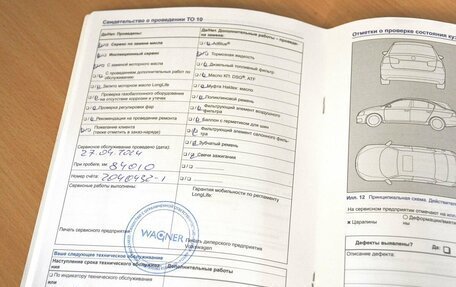 Свидетельство о проведении ТО 10
Да/Нет Проведены:
Сервис по замене масла
Инспекционный сервис
С заменой моторного масла
С проведением дополнительных работ по обслуживанию
Залито моторное масло LongLife
Проверка газобаллонного оборудования на отсутствие коррозии и утечек
Проверка регулировки фар
Рекомендация на проведение ремонта
Пожелания клиента
(также отметить в заказ-наряде)
Сервисное обслуживание проведено (дата):
При пробеге, км 84010
Номер счёта: 2040432-1
Сервисные работы выполнены:
Печать сервисного предприятия
Да/Нет Дополнительные работы – проведена замена:
AdBlue®
Тормозная жидкость
Дизельный топливный фильтр
Масло КП DSG®, ATF
Муфта Haldex: масло
Поликлиновой ремень
Фильтрующий элемент воздушного фильтра
Баллон с герметиком для шин
Фильтрующий элемент салонного фильтра
Зубчатый ремень
Свечи зажигания
Гарантия мобильности по регламенту LongLife:
Печать дилерского предприятия Volkswagen
WAGNER
Ваше следующее техническое обслуживание
Наступление срока технического обслуживания
Дополнительные работы
По индикатору технического обслуживания
или
Отметки о проверке состояния ку
Илл. 12 Принципиальная схема.
На сервисном предприятии отмечают на
Царапины
Дефекты выявлены?
Да:
Описание дефекта: